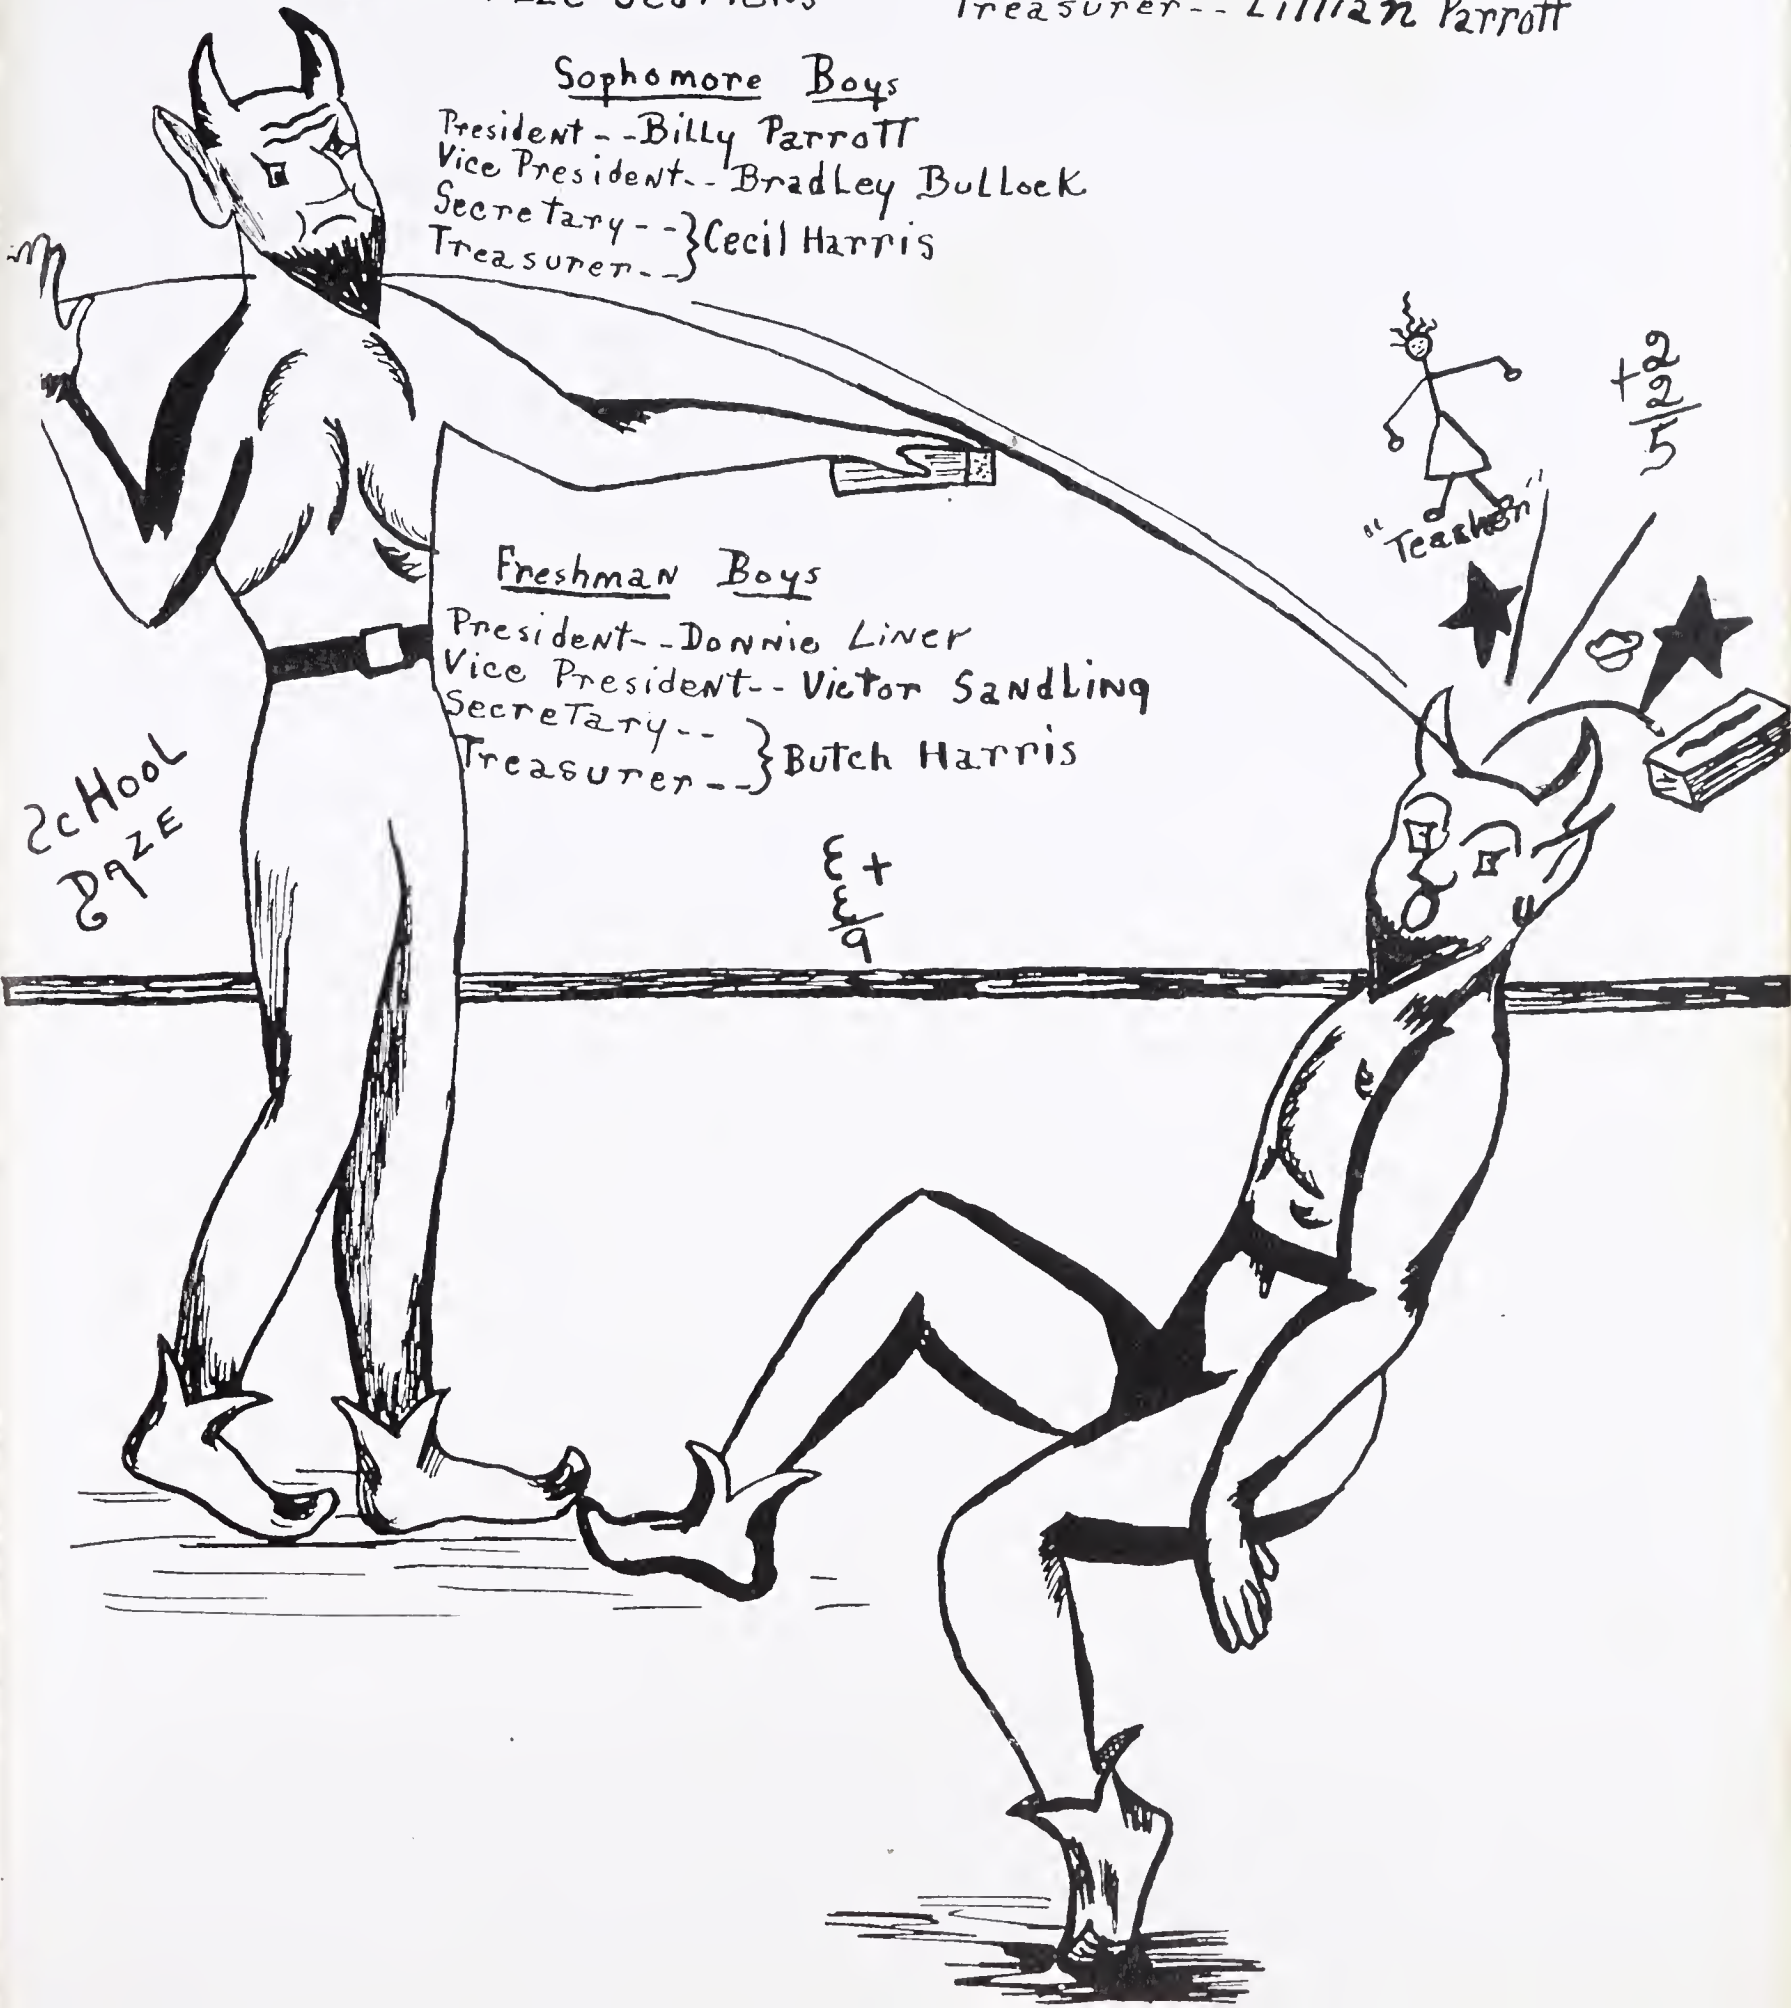 Treasurer-- Lillian Parrott
Sophomore Boys
President--Billy Parrott
Vice President--Bradley Bullock
Secretary--}Cecil Harris
Treasurer--
+2
2
5
"Teacher"
Freshman Boys
President--Donnie Liner
Vice President--Victor Sandling
Secretary--
Treasurer--}Butch Harris
School
Daze
3+
3
9